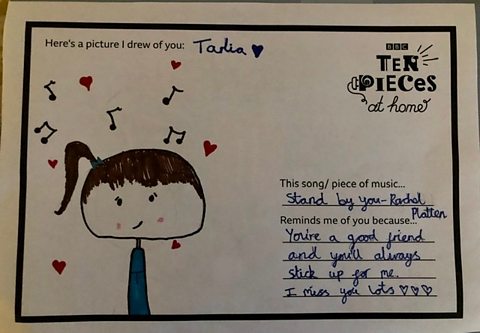 Here's a picture I drew of you: Tarlia
BBC
TEN
PIECES
at home
This song/ piece of music...
Stand by you - Rachel
Platten
Reminds me of you because...
You're a good friend
and you'll always
stick up for me.
I miss you lots ♡♡♡